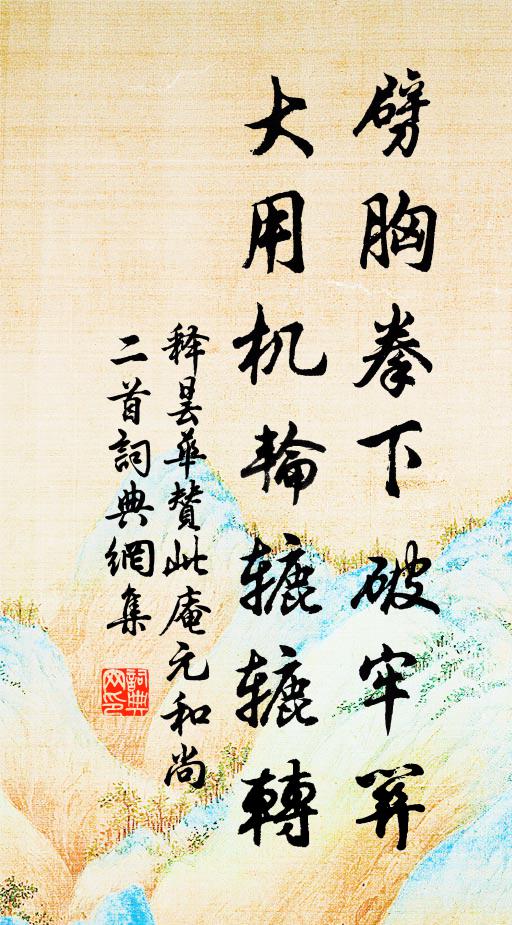 劈胸拳下破牢关
大用机輪辘辘轉
释昙華贊此庵元和尚
二首詞典網集
詞典网印